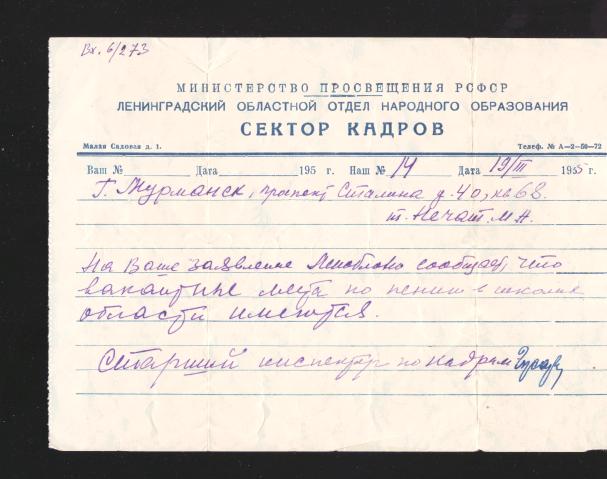 Вх. 6/273
МИНИСТЕРСТВО ПРОСВЕЩЕНИЯ РСФСР
ЛЕНИНГРАДСКИЙ ОБЛАСТНОЙ ОТДЕЛ НАРОДНОГО ОБРАЗОВАНИЯ
СЕКТОР КАДРОВ
Малая Садовая д. 1. Телеф. № А—2—50—72
Ваш № Дата 195 г. Наш № 14 Дата 19/III 1955 г.
Г. Мурманск, проспект Сталина д. 40, кв 68.
т. Нечат. М. Н.
На Ваше заявление Леноблоно сообщает, что
вакантные места по пению в школах
области имеются.
Старший инспектор по кадрам